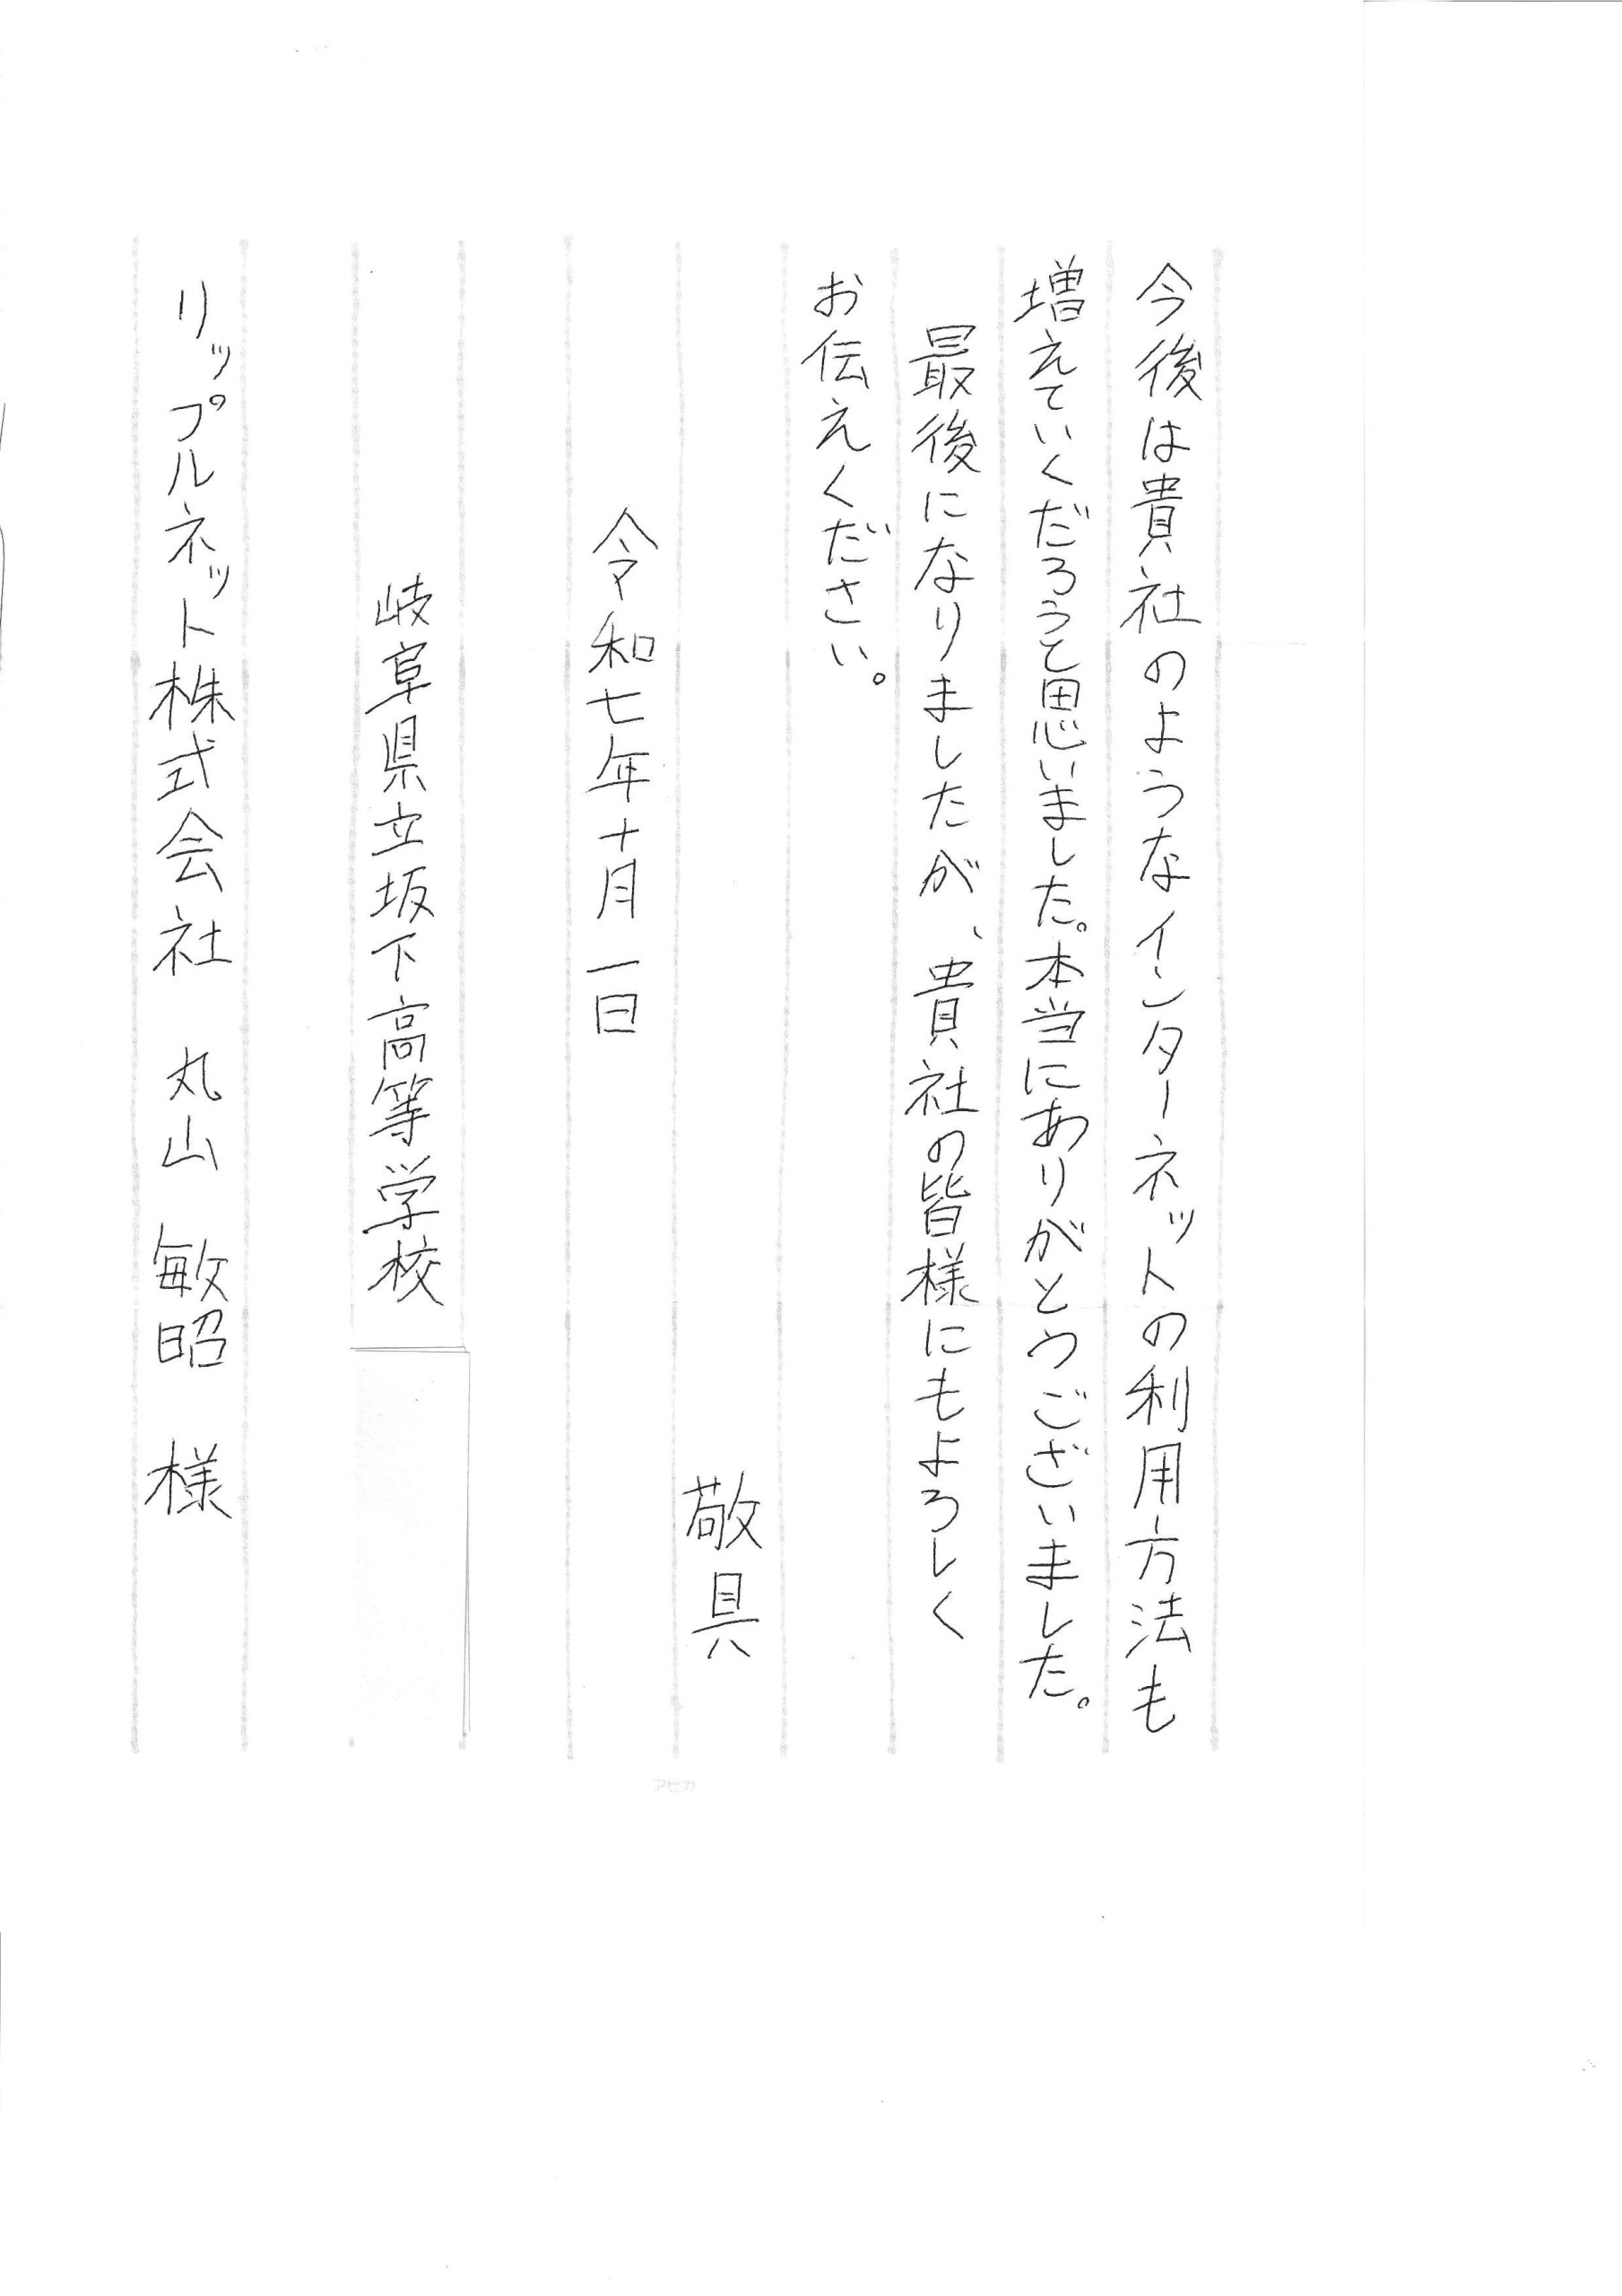 今後は貴社のようなインターネットの利用方法も
増えていくだろうと思いました。本当にありがとうございました。
最後になりましたが、貴社の皆様にもよろしく
お伝えください。
敬具
令和七年十月一日
岐阜県立坂下高等学校
リップルネット株式会社　丸山　敏昭　様
アピカ